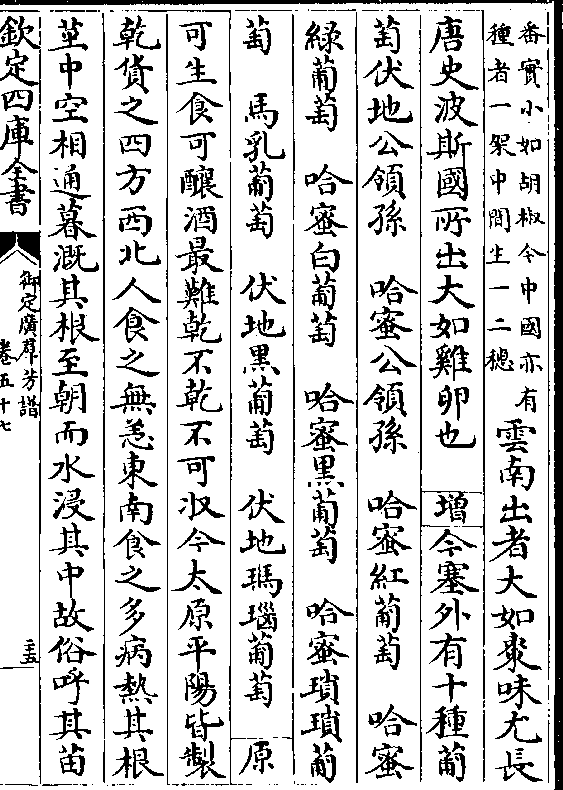 番實小如胡椒今中國亦有
種者一架中間生一二穗
雲南出者大如棗味尤長
唐史波斯國所出大如雞卵也 增 今塞外有十種葡
萄伏地公領孫 哈蜜公領孫 哈蜜紅葡萄 哈蜜
綠葡萄 哈蜜白葡萄 哈蜜黑葡萄 哈蜜瑣瑣葡
萄 馬乳葡萄 伏地黑葡萄 伏地瑪瑙葡萄 原
可生食可釀酒最難乾不乾不可收今太原平陽皆製
乾貨之四方西北人食之無恙東南食之多病熱其根
莖中空相通暮溉其根至朝而水浸其中故俗呼其苗
欽定四庫全書
御定廣群芳譜
卷五十七